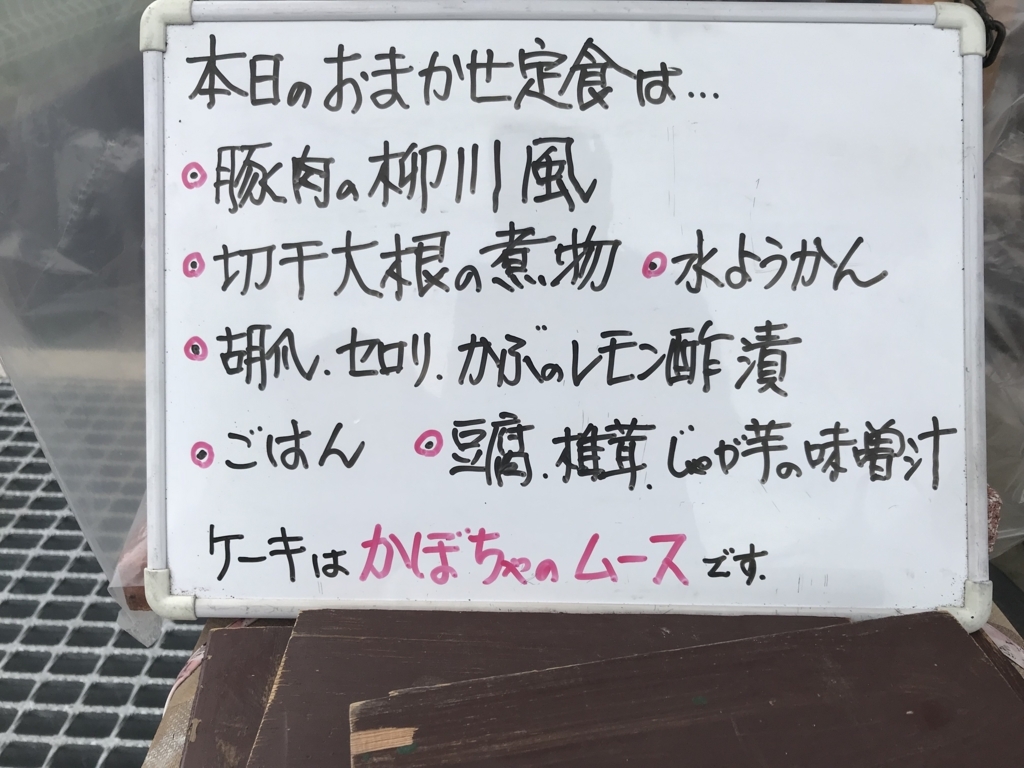 本日のおまかせ定食は…
豚肉の柳川風
切干大根の煮物 水ようかん
胡瓜、セロリ、かぶのレモン酢漬
ごはん 豆腐、椎茸、じゃが芋の味噌汁
ケーキはかぼちゃのムースです。